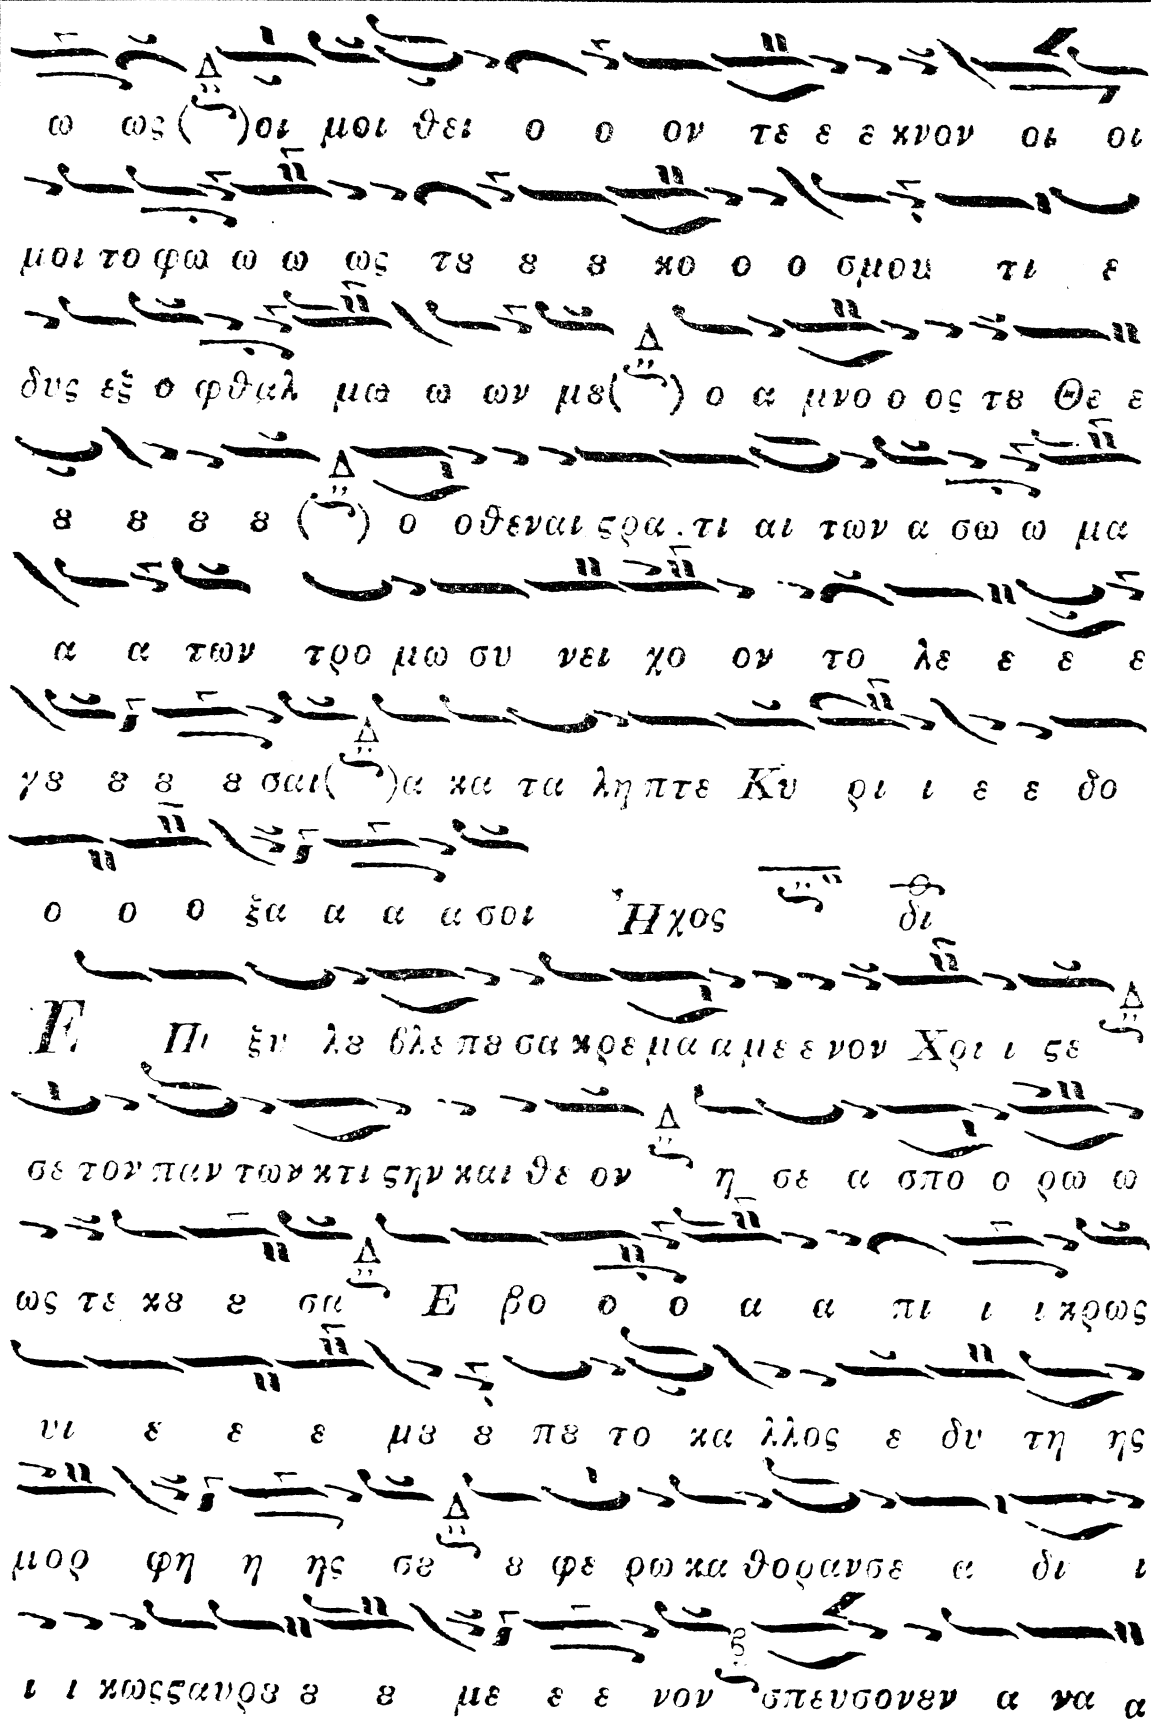 ω ως ( Δ ) οι μοι θει ο ο ον τε ε ε κνον οι οι
μοι το φω ω ω ως τȣ ȣ ȣ κο ο ο σμου τι ε
δυς εξ ο φθαλ μω ω ων μȣ ( Δ ) ο α μνο ο ος τȣ Θε ε
ȣ ȣ ȣ ȣ ( Δ ) ο οθεναι ϛρα . τι αι των α σω ω μα
α α των τρο μω συ νει χο ον το λε ε ε ε
γȣ ȣ ȣ ȣ σαι ( Δ ) α κα τα ληπτε Κυ ρι ι ε ε δο
ο ο ο ξα α α α σοι Ἦχος δι
Ε Πι ξυ λȣ βλε πȣ σα κρε μα α με ε νον Χρι ι ϛε Δ
σε τον παν των κτι ϛην και θε ον Δ η σε α σπο ο ρω ω
ως τε κȣ ȣ σα Δ Ε βο ο ο α α πι ι ι κρως
υι ε ε ε μȣ ȣ πȣ το κα λλος ε δυ τη ης
μορ φη η ης σȣ Δ ȣ φε ρω κα θορανσε α δι ι
ι ι κωςϛαυρȣ ȣ ȣ με ε ε νον σπευσονȣν α να α